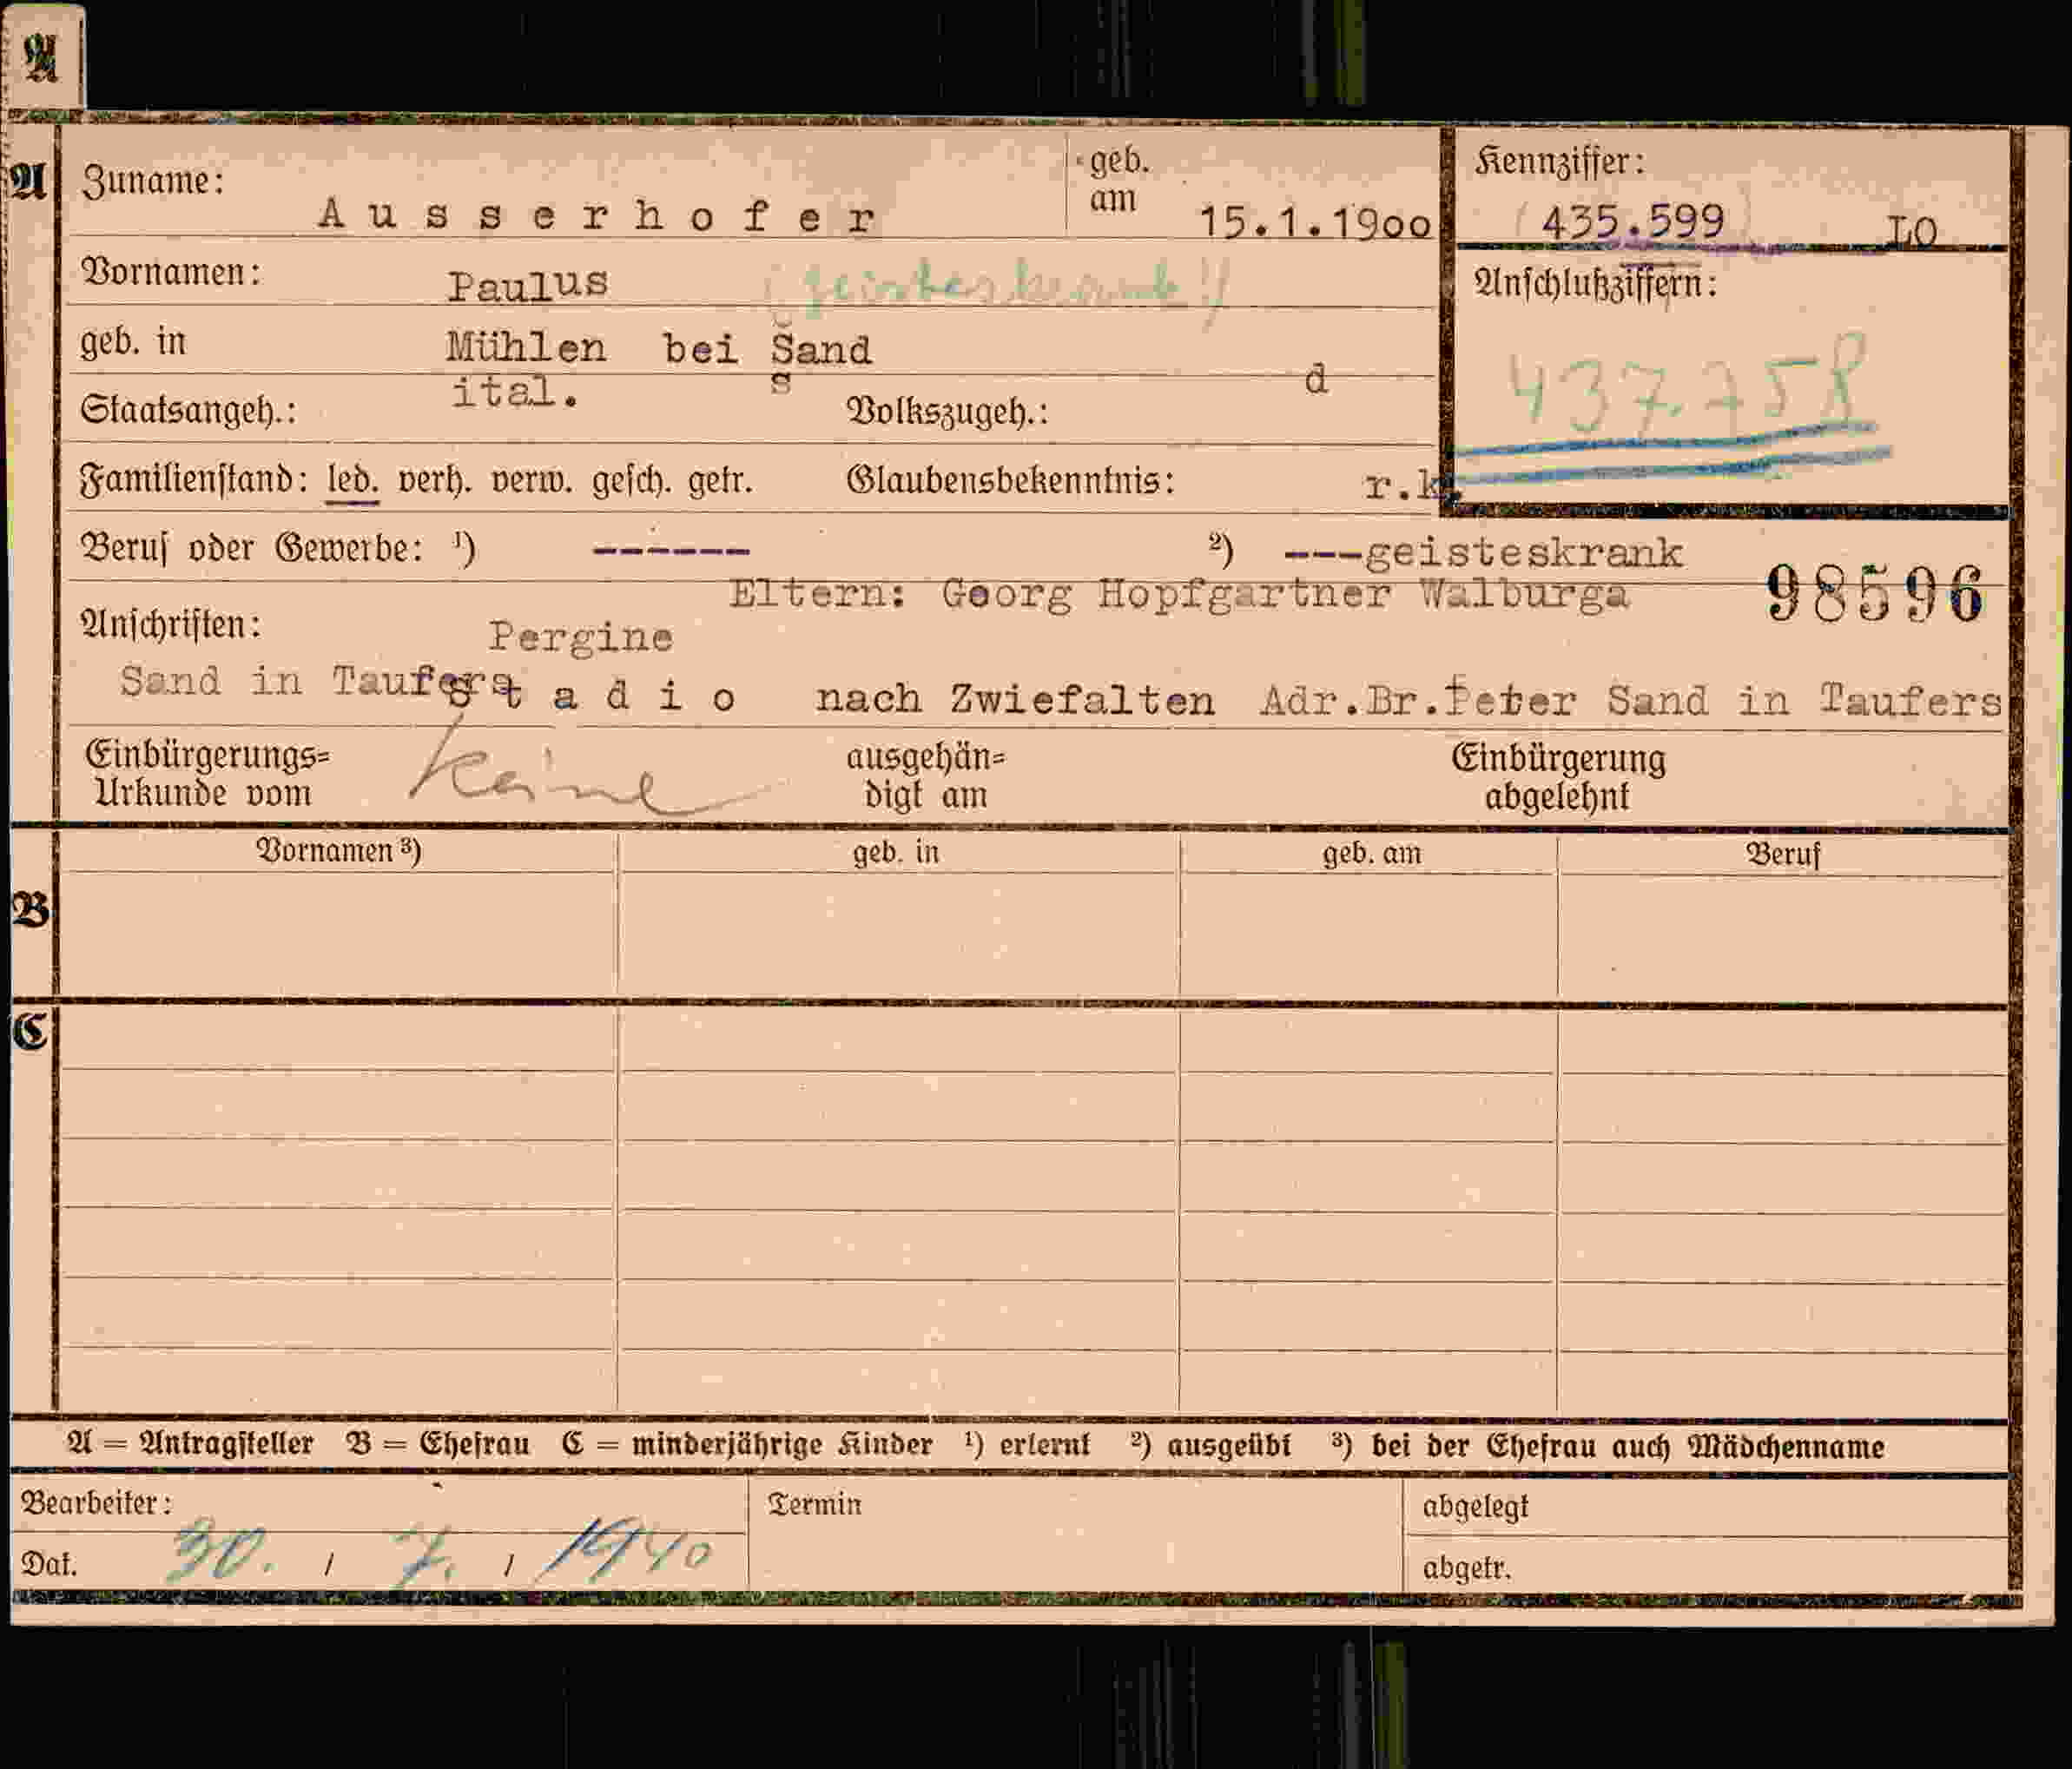 A
A Zuname: Ausserhofer geb. am 15.1.1900 Kennziffer: 435.599 LO
Vornamen: Paulus (geisteskrank!) Anschlußziffern: 437.758
geb. in Mühlen bei Sand
Staatsangeh.: ital. s Volkszugeh.: d
Familienstand: led. verh. verw. gesch. getr. Glaubensbekenntnis: r.k.
Beruf oder Gewerbe: ¹) ------ ²) ---geisteskrank
Eltern: Georg Hopfgartner Walburga 98596
Anschriften: Pergine
Sand in Taufers Stadio nach Zwiefalten Adr.Br.Peter Sand in Taufers
Einbürgerungs=Urkunde vom keine ausgehän=digt am Einbürgerung abgelehnt
Vornamen ³) geb. in geb. am Beruf
B
C
A = Antragsteller B = Ehefrau C = minderjährige Kinder ¹) erlernt ²) ausgeübt ³) bei der Ehefrau auch Mädchenname
Bearbeiter: Termin abgelegt
Dat. 30. / 7. / 1940 abgetr.